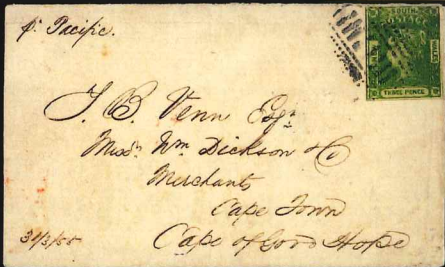 pr. Pacific.
SOUTH
THREE PENCE
J. B. Venn Esqr
Messrs Wm. Dickson & Co
Merchants
Cape Town
Cape of Good Hope
31/3/55